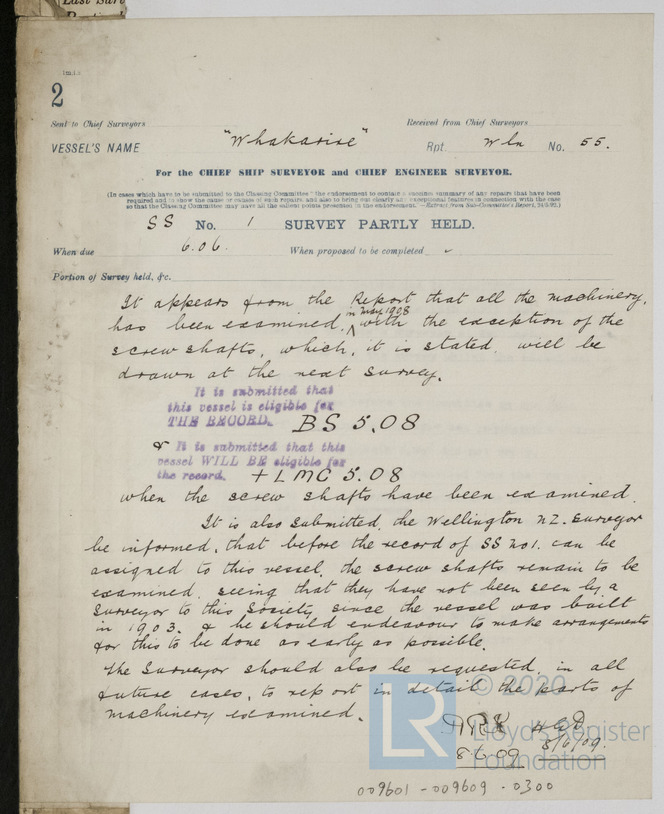 Last Surv
2
Sent to Chief Surveyors
Received from Chief Surveyors
VESSEL'S NAME "Whakarire" Rpt. Wln No. 55.
For the CHIEF SHIP SURVEYOR and CHIEF ENGINEER SURVEYOR.
(In cases which have to be submitted to the Classing Committee "the endorsement to contain a concise summary of any repairs that have been
required and to show the cause or causes of such repairs and also to bring out clearly any exceptional features in connection with the case
so that the Classing Committee may have all the salient points presented in the endorsement."—Extract from Sub-Committee's Report,
SS No. 1 SURVEY PARTLY HELD.
When due 6.06. When proposed to be completed
Portion of Survey held, &c.
It appears from the Report that all the machinery,
in May 1908
has been examined, with the exception of the
screw shafts, which, it is stated, will be
drawn at the next survey.
It is submitted that
this vessel is eligible for
THE RECORD. BS 5.08
& It is submitted that this
vessel WILL BE eligible for
the record. + LMC 5.08
when the screw shafts have been examined.
It is also submitted, the Wellington NZ. Surveyor
be informed, that before the record of SS No1. can be
assigned to this vessel, the screw shafts remain to be
examined, seeing that they have not been seen by a
Surveyor to this Society since the vessel was built
in 1903. & he should endeavour to make arrangements
for this to be done as early as possible.
The Surveyor should also be requested, in all
future cases, to report in detail the parts of
machinery examined.
8.6.09 8/6/09.
© 2020
LR
Lloyd's Register
Foundation
009601 - 009609 - 0300